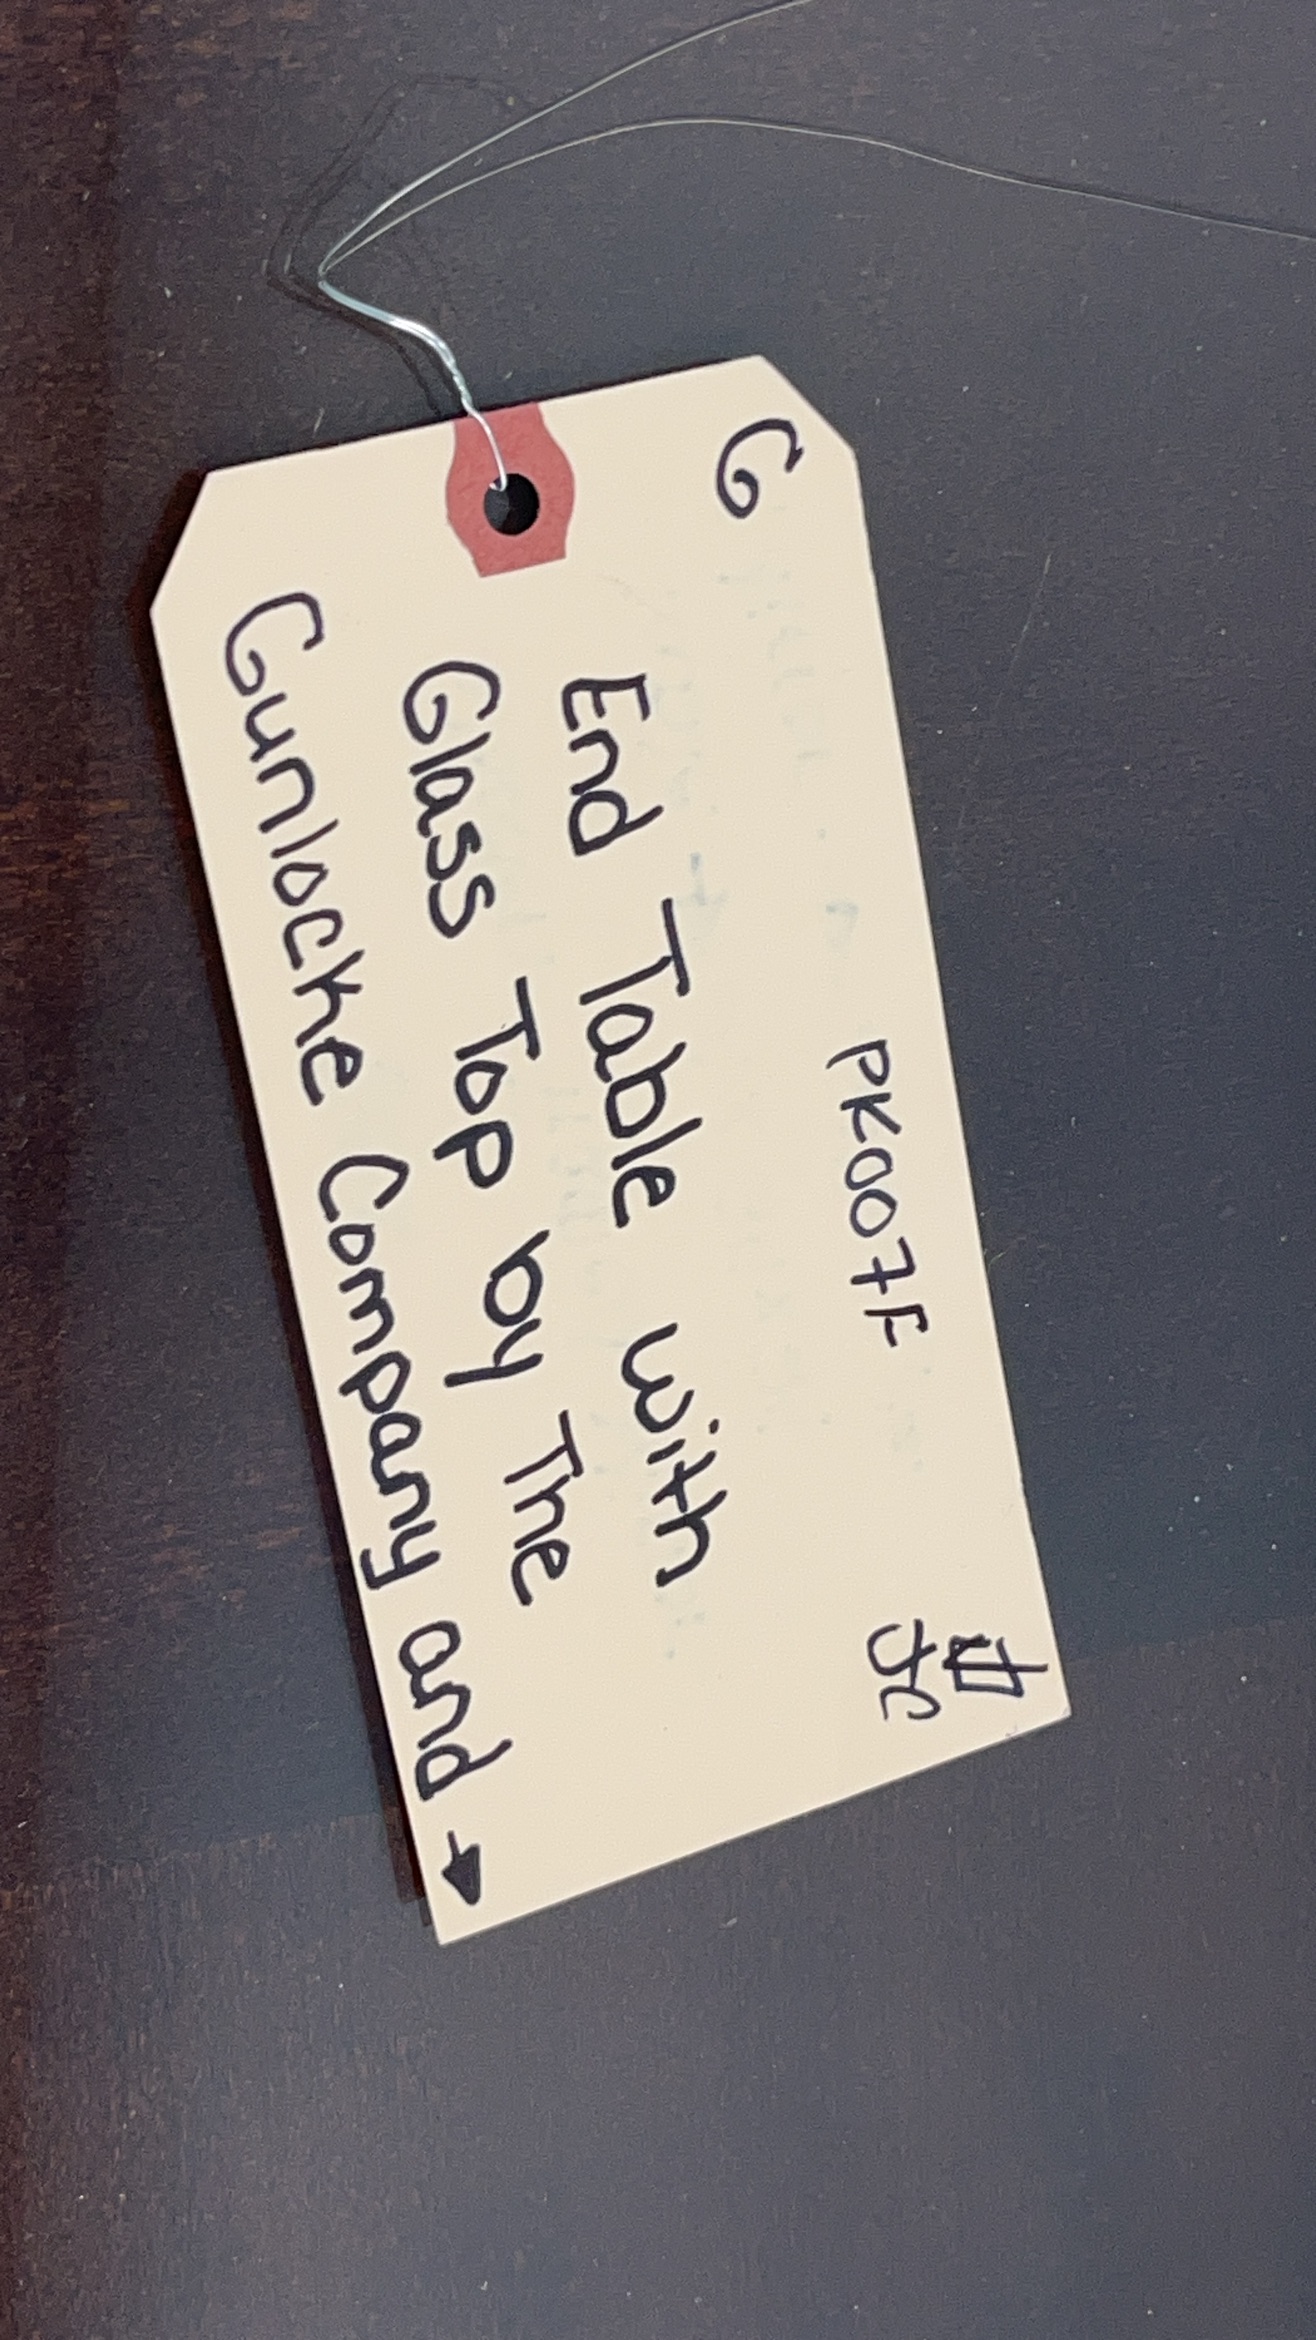 G
PK007F
JC
End Table with
Glass Top by The
Gunlocke Company and →